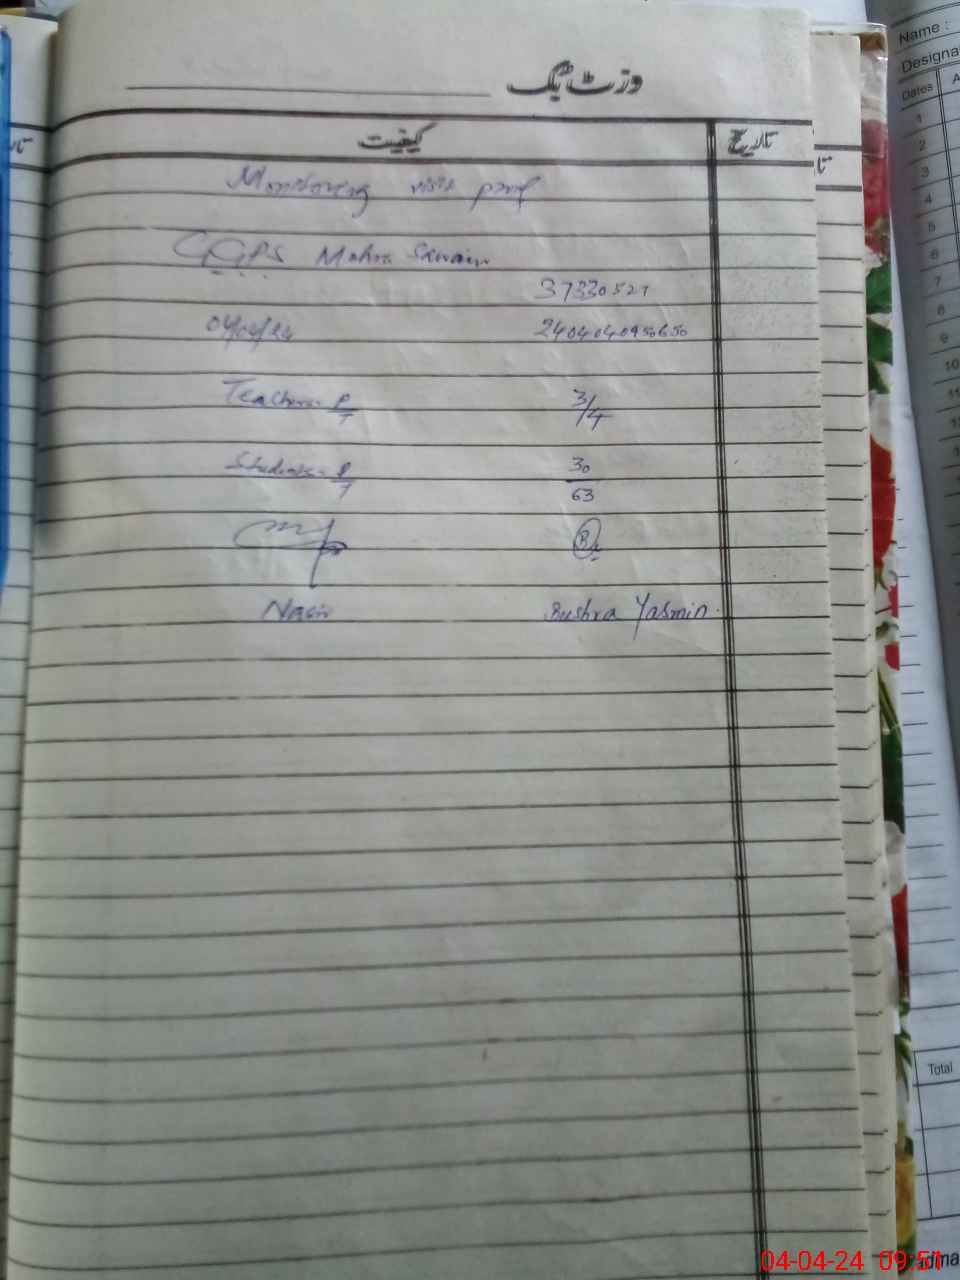 وزٹ بُک
کیفیت تاریخ
Monitoring visit proof
GGPS Mohra
37330521
04/04/24 240404095650
Teachers P/T 3/4
Students P/T 30/63
Bushra Yasmin
Name :
Dates
1
2
3
4
5
6
7
8
9
10
Total
04-04-24 09:51